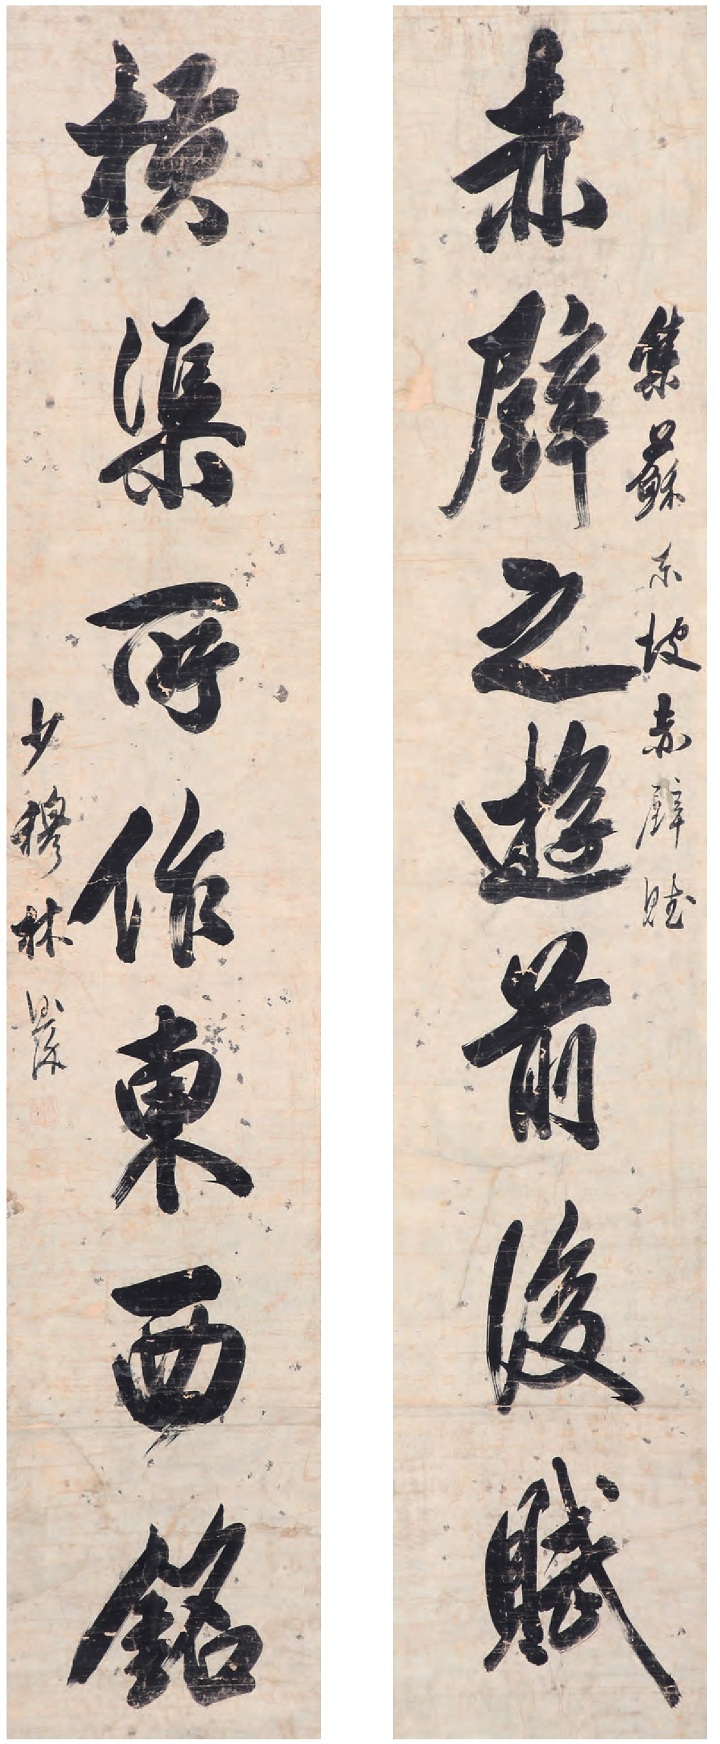 集蘇東坡赤壁賦
赤壁之遊前後賦
橫渠所作東西銘
少穆林則徐